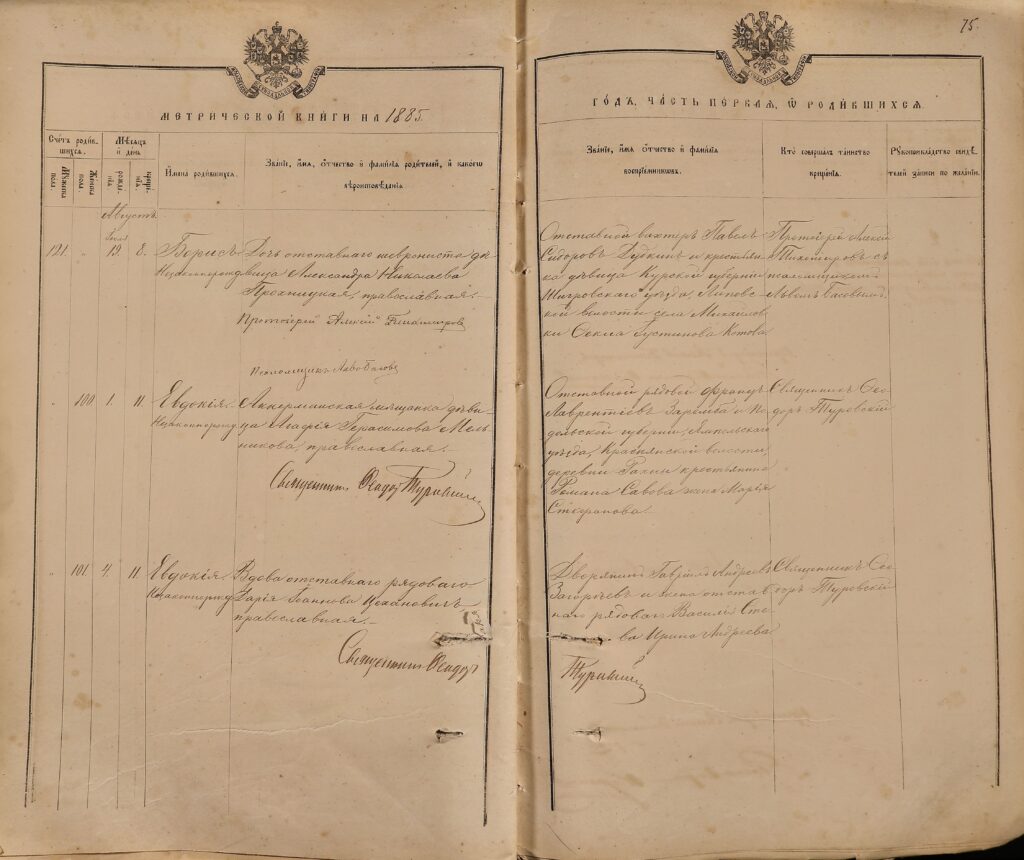 75.
МЕТРИЧЕСКОЙ КНИГИ НА 1885.
ГОДЪ, ЧАСТЬ ПЕРВАЯ, Ѿ РОДИВШИХСЯ.
Счетъ родив-
шихся.
Мужеска
пола.
Женска
пола.
Мѣсяцъ
и день
рожде-
нія.
креще-
нія.
Имена родившихся.
Званіе, имя, отчество и фамилія родителей, и какого
вѣроисповѣданія
Званіе, имя отчество и фамилія
воспріемниковъ.
Кто совершалъ таинство
крещенія.
Рукоприкладство свидѣ-
телей записи по желанію.
Августъ
Іюля
121. " 19. 8.
Борисъ
Незаконнорожд
Дочь отставнаго шеврониста дѣ-
вица Александра Николаева
Прохницкая, православная.
Протоіерей Алексій Тихомировъ
Псаломщикъ
Отставной вахтеръ Павелъ
Сидоровъ Дубкинъ и крестьян-
ка дѣвица Курской губерніи
Щигровскаго уѣзда, Липовс-
кой волости села Михайлов-
ки Ѳекла Густинова Котова.
Протоіерей Алексій
Тихомировъ съ
псаломщикомъ
Львомъ
" 100 1. 11.
Евдокія.
Незаконнорожд
Аккерманская мѣщанка дѣви-
ца Агафія Герасимова Мель-
никова, православная.
Священникъ Ѳеодоръ Туровскій
Отставной рядовой Францъ
Лаврентіевъ Заремба и По-
дольской губерніи, Ямпольскаго
уѣзда, волости,
деревни крестьянина
Романа Савова жена Марія
Стефанова.
Священникъ Ѳео-
доръ Туровскій
" 101 4. 11.
Евдокія
Незаконнорожд
Вдова отставнаго рядоваго
Дарія Іоаннова Цехановичъ
православная.
Священникъ Ѳеодоръ
Дворянинъ Гавріилъ Андреевъ
и жена отстав-
наго рядоваго Василія Сте-
ва Ирина Андреева
Туровскій
Священникъ Ѳео-
доръ Туровскій